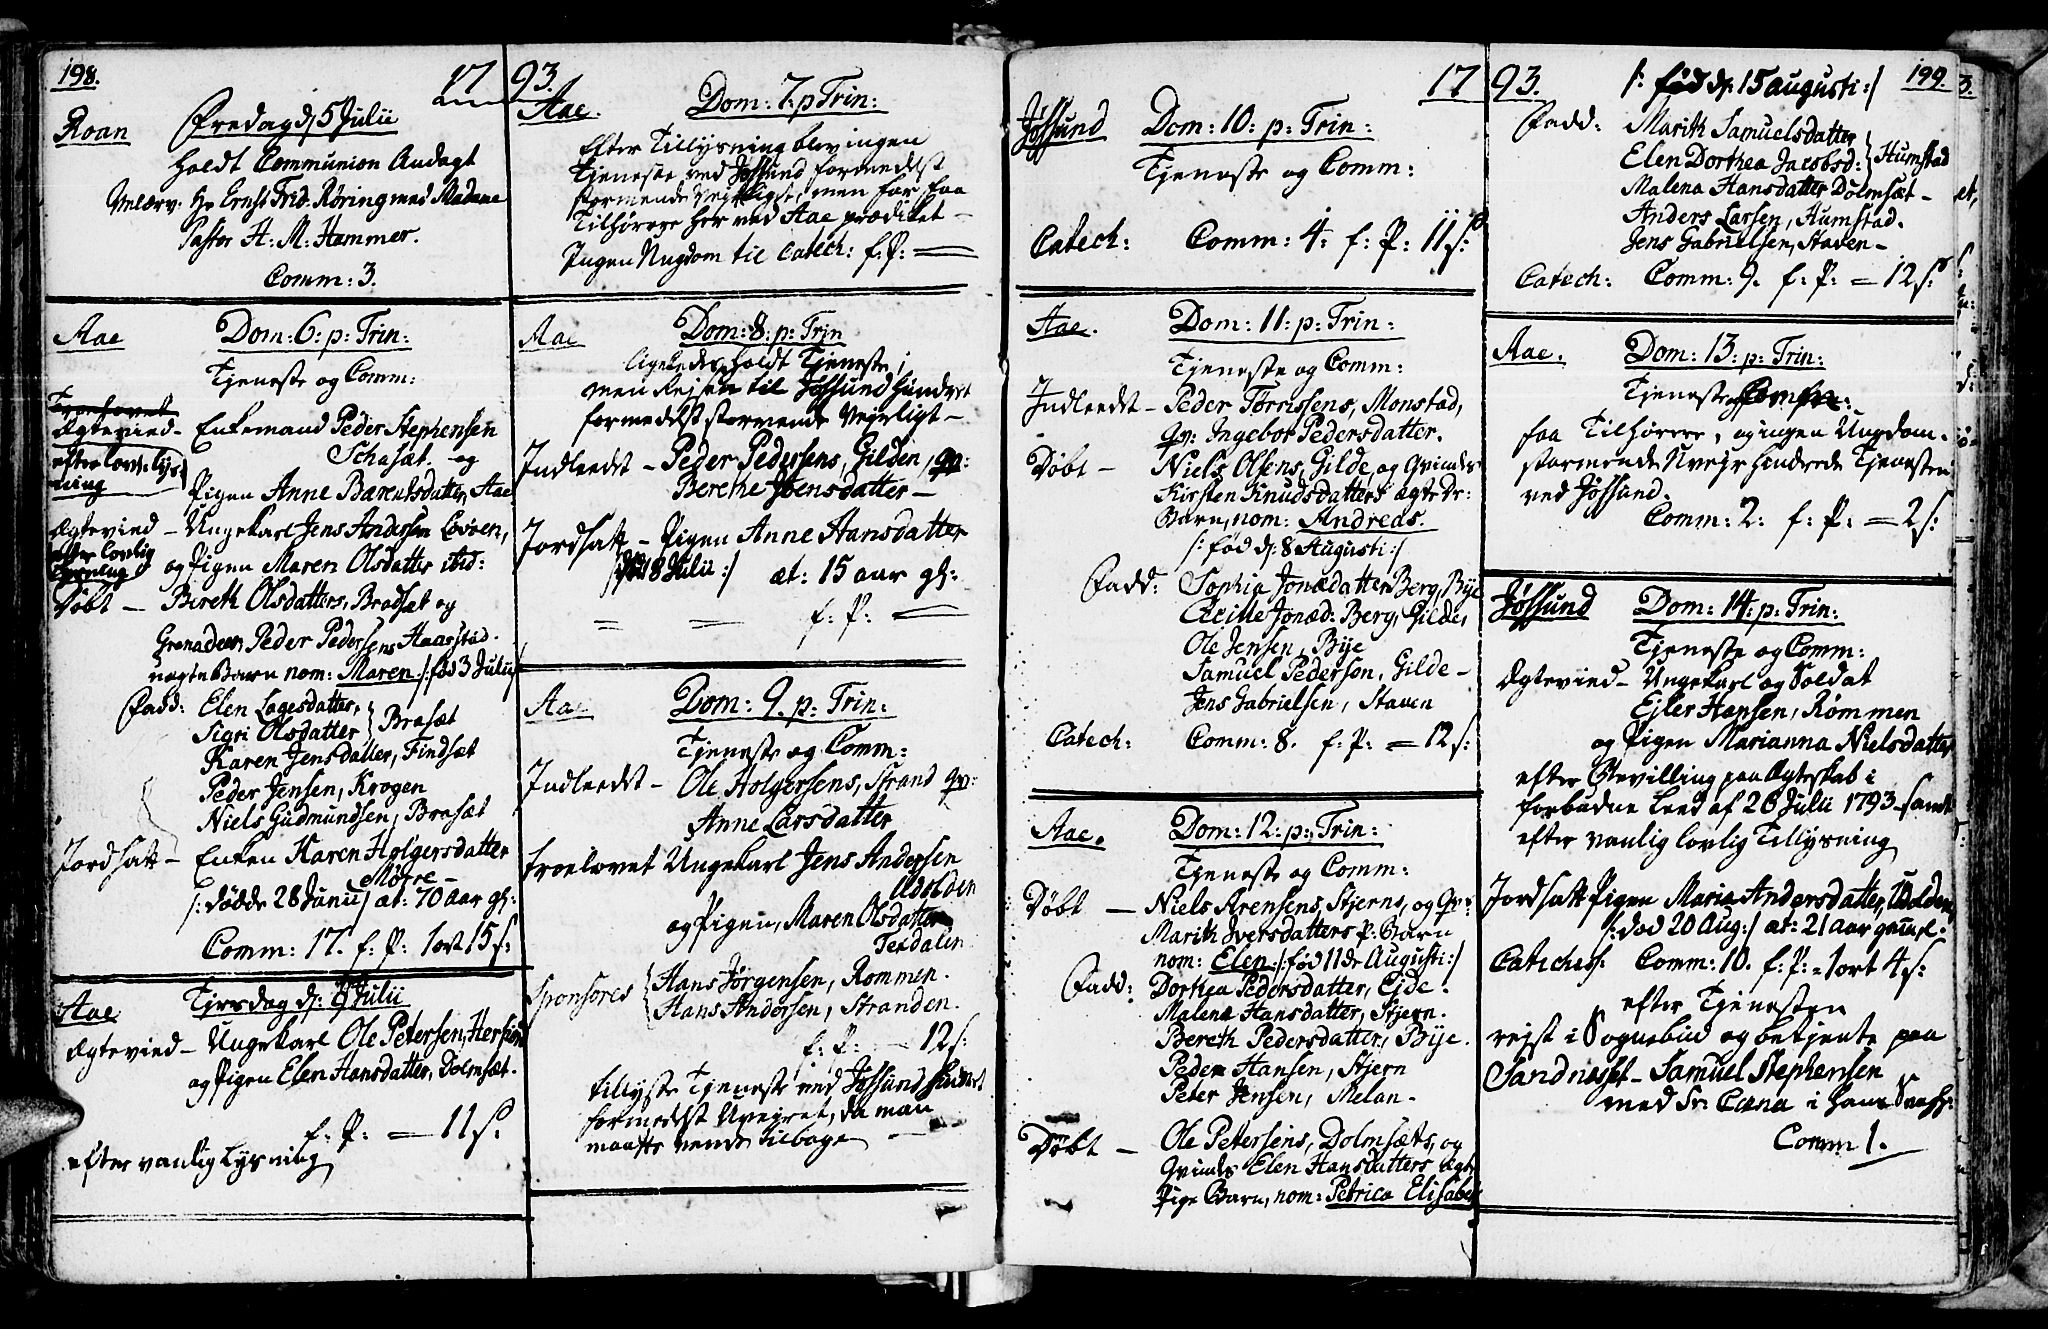 198.
17 93.
Roan
Fredag d. 5 Julii
holdt Communion Andagt
Velærv: Hr Ernst Frid. Røring med Madame
Pastor H: M: Hammer.
Comm: 3.
Aae
Dom: 6: p: Trin:
Tjeneste og Comm:
Troelovet
Ægtevied – Enkemand Peder Stephensen
Schasæt. og
efter lovl: lys-
ning
Pigen Anne Barentsdatter, Aae
Ægtevied – Ungekarl Jens Andersen
efter lovlig
og Pigen Maren Olsdatter ibid:
Døbt – Bereth Olsdatters, Brasæt og
Grenadeer, Peder Pedersens Haarstad.
uægte Barn nom: Maren /: fød 3 Julii
Fadd: Elen Lagesdatter,
Sigri Olsdatter } Brasæt
Karen Jensdatter, Findsæt
Peder Jensen, Krogen
Niels Gudmundsen, Brasæt
Jordsatt – Enken Karen Holgersdatter
Mørre –
/: død de 28 Junii/ æt: 70 aar gl:
Comm: 17. f: P: 1 ort 15 s:
Aae
Tirsdag d: 9 Julii
Ægtevied – Ungekarl Ole Petersen,
og Pigen Elen Hansdatter, Dolmsæt.
f: P: = 11 s:
efter vanlig Lysning
Aae.
Dom: 7: p Trin:
Efter Tillysning blev ingen
Tjeneste ved Jøssund formedelst
stormende Vejrligt, men for faa
Tilhørere her ved Aae prædiket –
Ingen Ungdom til Catech: f: P: =
Aae
Dom: 8: p: Trin
ligeledes holdt Tjeneste,
men Rejsen til Jøssund hindret
formedelst stormende Vejrligt –
Indleedt – Peder Pedersens, Gilden, qv:
Berethe Joensdatter –
Jordsatt – Pigen Anne Hansdatter
18 Julii :/ æt: 15 aar gl:
= = f: P: =
Aae
Dom: 9. p: Trin:
Tjeneste og Comm:
Indleedt – Ole Holgersens, Strand qv:
Anne Larsdatter
troelovet Ungekarl Jens Andersen
Udolden
og Pigen, Maren Olsdatter
Terdalen
Sponsores { Hans Jørgensen, Rommen.
Hans Andersen, Stranden.
f: P: – 12 s:
tillyste Tjeneste ved Jøssund hindret
formedelst Uvejret, da man
maatte vende tilbage –
17 93.
199.
Jøssund
Dom: 10: p: Trin:
Tjeneste og Comm:
Catech: Comm: 4: f: P: 11 s:
Aae.
Dom: 11: p: Trin:
Tjeneste og Comm:
Indleedt – Peder Torrissens, Monstad,
qv: Ingebor Pedersdatter.
Døbt – Niels Olsens, Gilde, og Qvindes
Kirsten Knudsdatters ægte Dr:
Barn, nom: Andreas.
/: fød d: 8 Augusti :/
Fadd: Sophia Jonædatter Berg, Bye
Cecille Jonæd: Berg, Gilde,
Ole Jensen, Bye
Samuel Pedersen, Gilde –
Jens Gabrielsen, Staven
Catech: Comm: 8. f: P: = 12 s:
Aae.
Dom: 12: p: Trin:
Tjeneste og Comm:
Døbt – Niels Arensens, Stjern, og Qv:
Marith Iversdatters P: Barn
nom: Elen /: fød 11 de Augusti :/
Fadd: Dorthea Pedersdatter, Eide.
Malena Hansdatter, Stjern.
Bereth Pedersdatter, Bye.
Peder Hansen, Stjern
Peter Jensen, Melan.
Døbt – Ole Petersens, Dolmsæts, og
Qvindes Elen Hansdatters ægte
Pige Barn, nom: Petrica Elisabeth
/: fød d: 15 augusti :/
Fadd: Marith Samuelsdatter
Elen Dorthea Jacobsd: } Humstad
Malena Hansdatter Dolmsæt –
Anders Larsen, Humstad.
Jens Gabrielsen, Staven –
Catech: Comm: 9. f: P: = 12 s:
Aae.
Dom: 13: p: Trin:
Tjeneste
faa Tilhørere, og ingen Ungdom.
stormende Uvejr hindrede Tjenesten
ved Jøssund.
Comm: 2: f: P: = 2 s:
Jøssund
Dom: 14: p: Trin:
Tjeneste og Comm:
Ægtevied – Ungekarl og Soldat
Ejler Hansen, Rømmen
og Pigen Marianna Nielsdatter
efter Bevilling paa Ægteskab i
forbudne Leed af 26 Julii 1793 – samt
efter vanlig lovlig Tillysning
Jordsatt Pigen Maria Andersdatter, Udolden,
/: død 20 Aug :/ æt: 21 aar gaml.
Catechis: Comm: 10. f: P: = 1 ort 4 s:
efter Tjenesten
rejst i Sognebud og betjente paa
Sandnæsset – Samuel Stephensen
med Sr: Cæna i hans Svagh:
Comm 1.